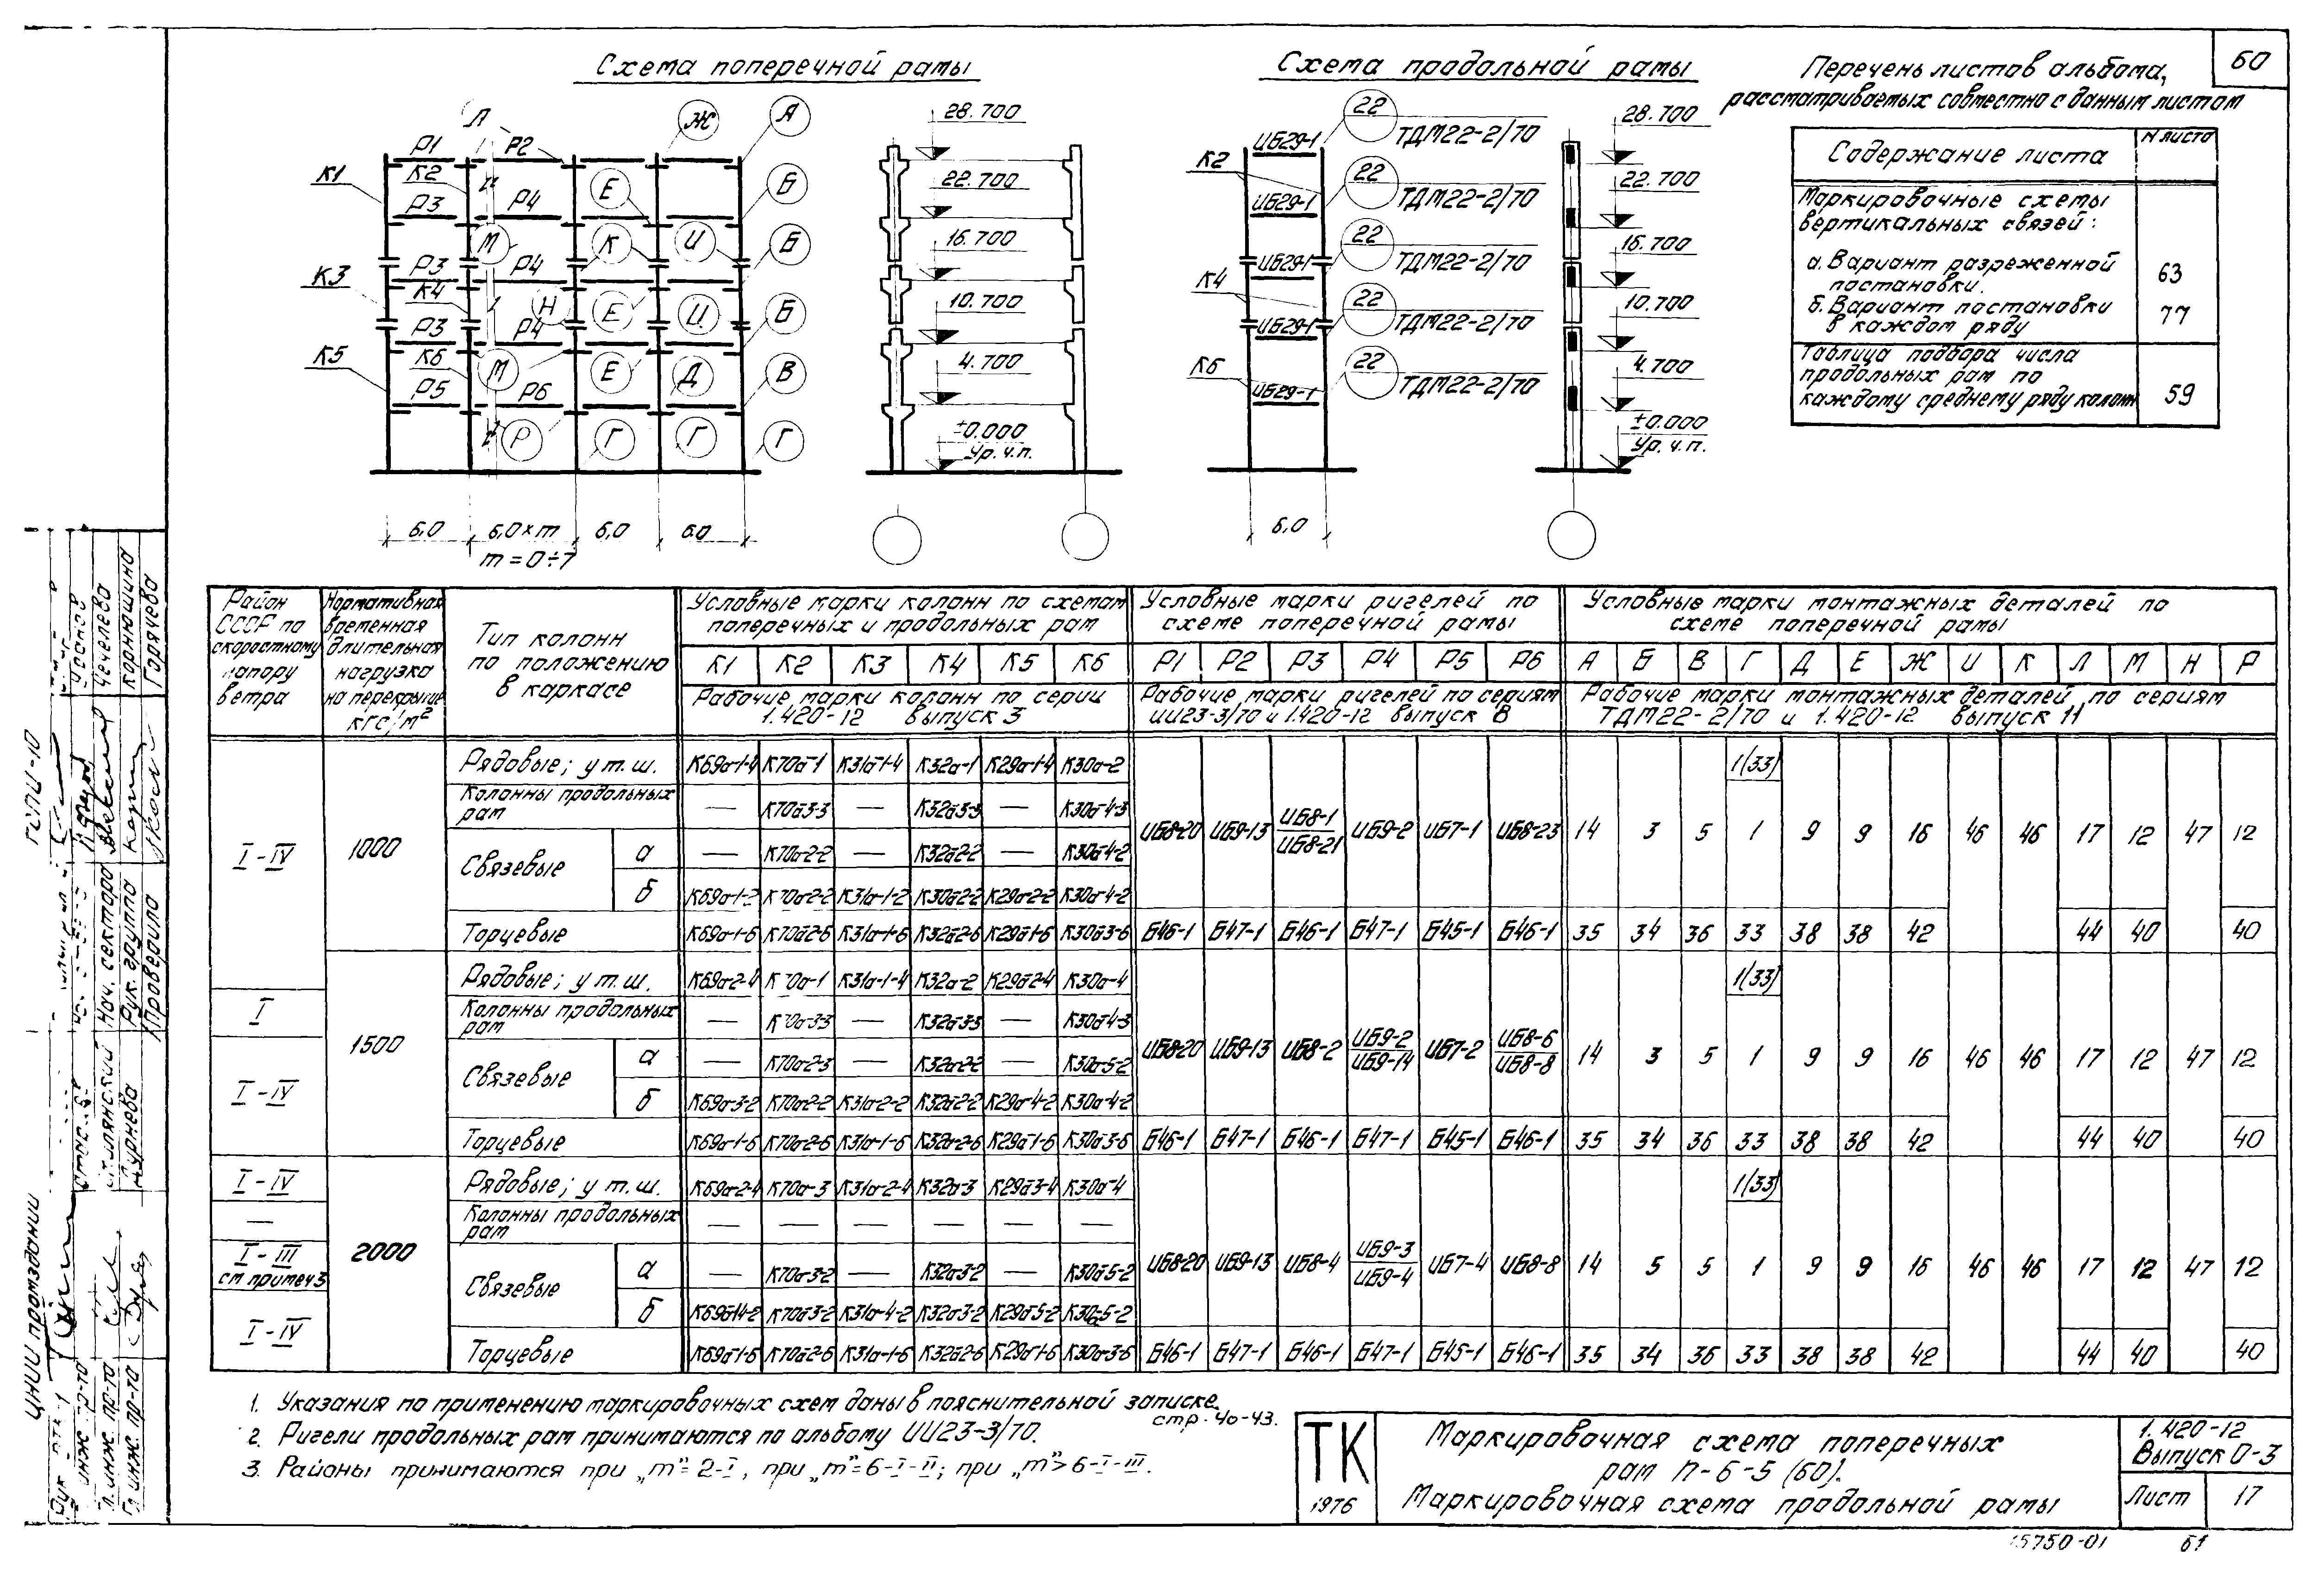 60
Схема поперечной рамы
Схема продольной рамы
Перечень листов альбома,
рассматриваемых совместно с данным листом
Содержание листа
N листа
Маркировочные схемы
вертикальных связей:
а. Вариант разреженной
постановки.
63
б. Вариант постановки
в каждом ряду
77
Таблица подбора числа
продольных рам по
каждому среднему ряду колонн
59
Л Ж А
Р1 Р2
К1 К2
Е Б
Р3 Р4
М К И Б
Р3 Р4
К3 К4
Н Е И Б
Р3 Р4
К5 К6
М Е Д В
Р5 Р6
Р Г Г Г
6,0 6,0×m 6,0 6.0
m=0÷7
28.700
22.700
16.700
10.700
4.700
±0.000
Ур. ч.п.
К2
К4
К6
ИБ29-1 22 ТДМ22-2/70
ИБ29-1 22 ТДМ22-2/70
ИБ29-1 22 ТДМ22-2/70
ИБ29-1 22 ТДМ22-2/70
ИБ29-1 22 ТДМ22-2/70
6,0
28.700
22.700
16.700
10.700
4.700
±0.000
Ур. ч.п.
Район СССР по скоростному напору ветра
Нормативная временная длительная нагрузка на перекрытие кгс/м²
Тип колонн по положению в каркасе
Условные марки колонн по схемам поперечных и продольных рам
Условные марки ригелей по схеме поперечной рамы
Условные марки монтажных деталей по схеме поперечной рамы
К1 К2 К3 К4 К5 К6 Р1 Р2 Р3 Р4 Р5 Р6 А Б В Г Д Е Ж И К Л М Н Р
Рабочие марки колонн по серии 1.420-12 выпуск 3
Рабочие марки ригелей по сериям ИИ23-3/70 и 1.420-12 выпуск 8
Рабочие марки монтажных деталей по сериям ТДМ22-2/70 и 1.420-12 выпуск 11
I-IV 1000
Рядовые; у т.ш. К69а-1-4 К70а-1 К31а-1-4 К32а-1 К29а-1-4 К30а-2 1(33)
Колонны продольных рам — К70а3-3 — К32а3-3 — К30а-4-3
ИБ8-20 ИБ9-13 ИБ8-1 ИБ8-21 ИБ9-2 ИБ7-1 ИБ8-23 14 3 5 1 9 9 16 46 46 17 12 47 12
Связевые а — К70а-2-2 — К32а2-2 — К30а-4-2
б К69а-1-2 К70а-2-2 К31а-1-2 К30а2-2 К29а-2-2 К30а-4-2
Торцевые К69а-1-6 К70а2-6 К31а-1-6 К32а2-6 К29а1-6 К30а3-6 Б46-1 Б47-1 Б46-1 Б47-1 Б45-1 Б46-1 35 34 36 33 38 38 42 44 40 40
I
I-IV
1500
Рядовые; у т.ш. К69а-2-4 К70а-1 К31а-1-4 К32а-2 К29а2-4 К30а-4 1(33)
Колонны продольных рам — К70а-3-3 — К32а3-3 — К30а4-3
ИБ8-20 ИБ9-13 ИБ8-2 ИБ9-2 ИБ9-14 ИБ7-2 ИБ8-6 ИБ8-8 14 3 5 1 9 9 16 46 46 17 12 47 12
Связевые а — К70а-2-3 — К32а-2-2 — К30а-5-2
б К69а-3-2 К70а-2-2 К31а-2-2 К32а2-2 К29а-4-2 К30а-4-2
Торцевые К69а-1-6 К70а-2-6 К31а-1-6 К32а-2-6 К29а1-6 К30а3-6 Б46-1 Б47-1 Б46-1 Б47-1 Б45-1 Б46-1 35 34 36 33 38 38 42 44 40 40
I-IV
—
I-III
см. примеч 3
I-IV
2000
Рядовые; у т.ш. К69а-2-4 К70а-3 К31а-2-4 К32а-3 К29а3-4 К30а-4 1(33)
Колонны продольных рам — — — — — —
ИБ8-20 ИБ9-13 ИБ8-4 ИБ9-3 ИБ9-4 ИБ7-4 ИБ8-8 14 5 5 1 9 9 16 46 46 17 12 47 12
Связевые а — К70а-3-2 — К32а3-2 — К30а5-2
б К69а14-2 К70а3-2 К31а-4-2 К32а3-2 К29а5-2 К30а5-2
Торцевые К69а1-6 К70а2-6 К31а-1-6 К32а2-6 К29а1-6 К30а-3-6 Б46-1 Б47-1 Б46-1 Б47-1 Б45-1 Б46-1 35 34 36 33 38 38 42 44 40 40
1. Указания по применению маркировочных схем даны в пояснительной записке
стр. 40-43.
2. Ригели продольных рам принимаются по альбому ИИ23-3/70.
3. Районы принимаются при „m"=2-I, при „m"=6-I-II; при „m">6-I-III.
ТК
1976
Маркировочная схема поперечных
рам П-6-5 (60).
Маркировочная схема продольной рамы
1.420-12
Выпуск 0-3
Лист 17
15750-01 61
ЦНИИ промзданий
Нач. сектора
Рук. группы
Проверила
Чечелева
Корнюшина
Горячева